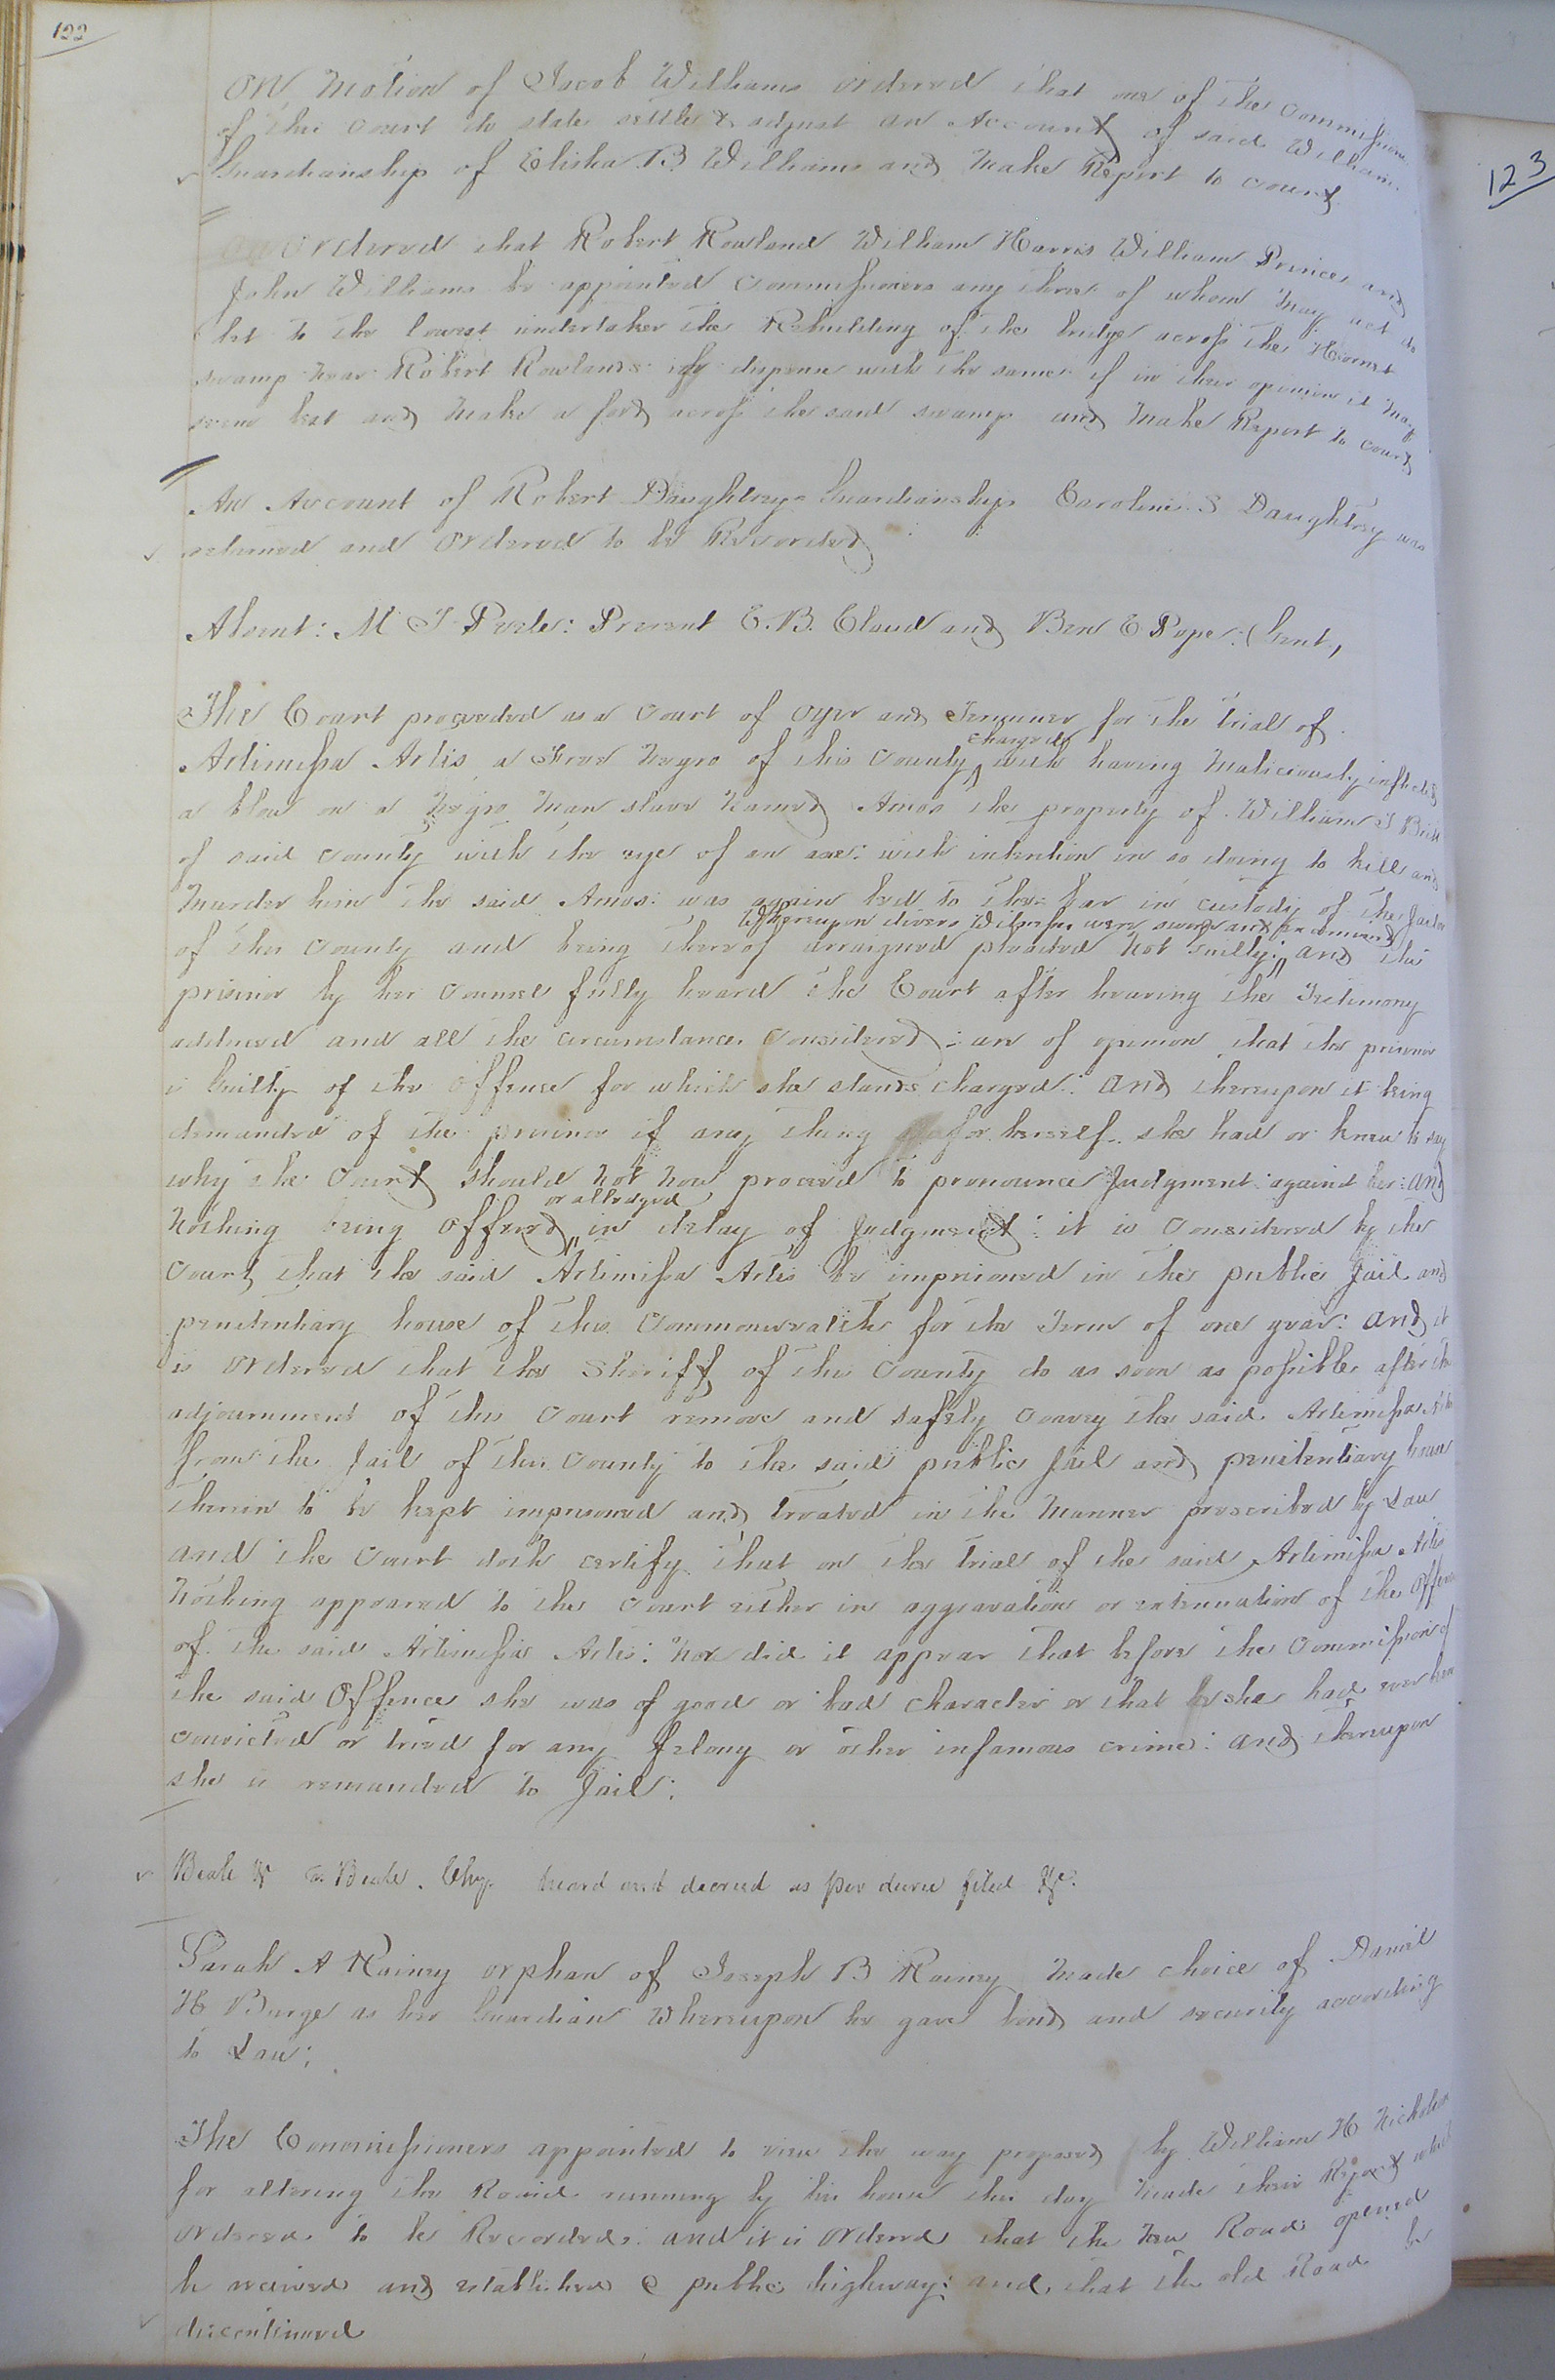 122
123
On Motion of Jacob Williams ordered that one of the Commissioners
of this Court do state settle & adjust an Account of said Williams
Guardianship of Elisha B Williams and Make Report to Court
Ordered that Robert Rowland William Harris William Prince and
John Williams be appointed Commissioners any three of whom may act do
let to the lowest undertaker the Rebuilding of the bridge across the Hornet
swamp near Robert Rowlands or dispense with the same if in their opinion it may
seem best and make a ford across the said swamp and Make Report to Court
An Account of Robert Daughtrey Guardianship Caroline S Daughtrey was
returned and Ordered to be Recorded
Absent: M T Peete: Present E. B. Claud and Ben E Pope: Gent,
The Court proceeded as a Court of Oyer and Terminer for the trial of
Artimissa Artis a Free Negro of this County charged with having Maliciously inflicted
a blow on a Negro Man slave Named Amos the property of William J
of said County with the eye of an axe: with intention in so doing to kill and
Murder him the said Amos: was again led to the bar in custody of the Jailor
of this County and being thereof arraigned pleaded Not Guilty: Whereupon divers Witnesses were sworn and examined and the
prisoner by her Counsel fully heard the Court after hearing the Testimony
adduced and all the circumstances Considered: are of opinion that the prisoner
is Guilty of the Offence for which she stands charged: and thereupon it being
demanded of the prisoner if any thing for herself she had or knew to say
why the Court should Not Now proceed to pronounce Judgment against her: and
Nothing being Offered or alledged in delay of Judgment: it is Considered by the
Court that the said Artimissa Artis be imprisoned in the public Jail and
penitentiary house of this Commonwealth for the Term of one year: and it
is Ordered that the Sheriff of this County do as soon as possible after the
adjournment of this Court remove and safely Convey the said Artimissa Artis
from the Jail of this County to the said public Jail and penitentiary house
therein to be kept imprisoned and treated in the Manner prescribed by Law
and the Court doth certify that on the trial of the said Artimissa Artis
Nothing appeared to the Court either in aggravation or extenuation of the Offence
of the said Artimissa Artis: Nor did it appear that before the Commission of
the said Offence she was of good or bad character or that she had ever been
convicted or tried for any felony or other infamous crime: and thereupon
she is remanded to Jail:
Beale & vs Beale. Chy. heard and decreed as per decree filed &c.
Sarah A Rainey orphan of Joseph B Rainey Made choice of Daniel
H Burge as her Guardian Whereupon he gave bond and security according
to Law:
The Commissioners appointed to view the way proposed by William H Nicholson
for altering the Road running by his house this day Made their Report which
Ordered to be Recorded: and it is Ordered that the New Road opened
be received and established a public highway: and that the old Road be
discontinued